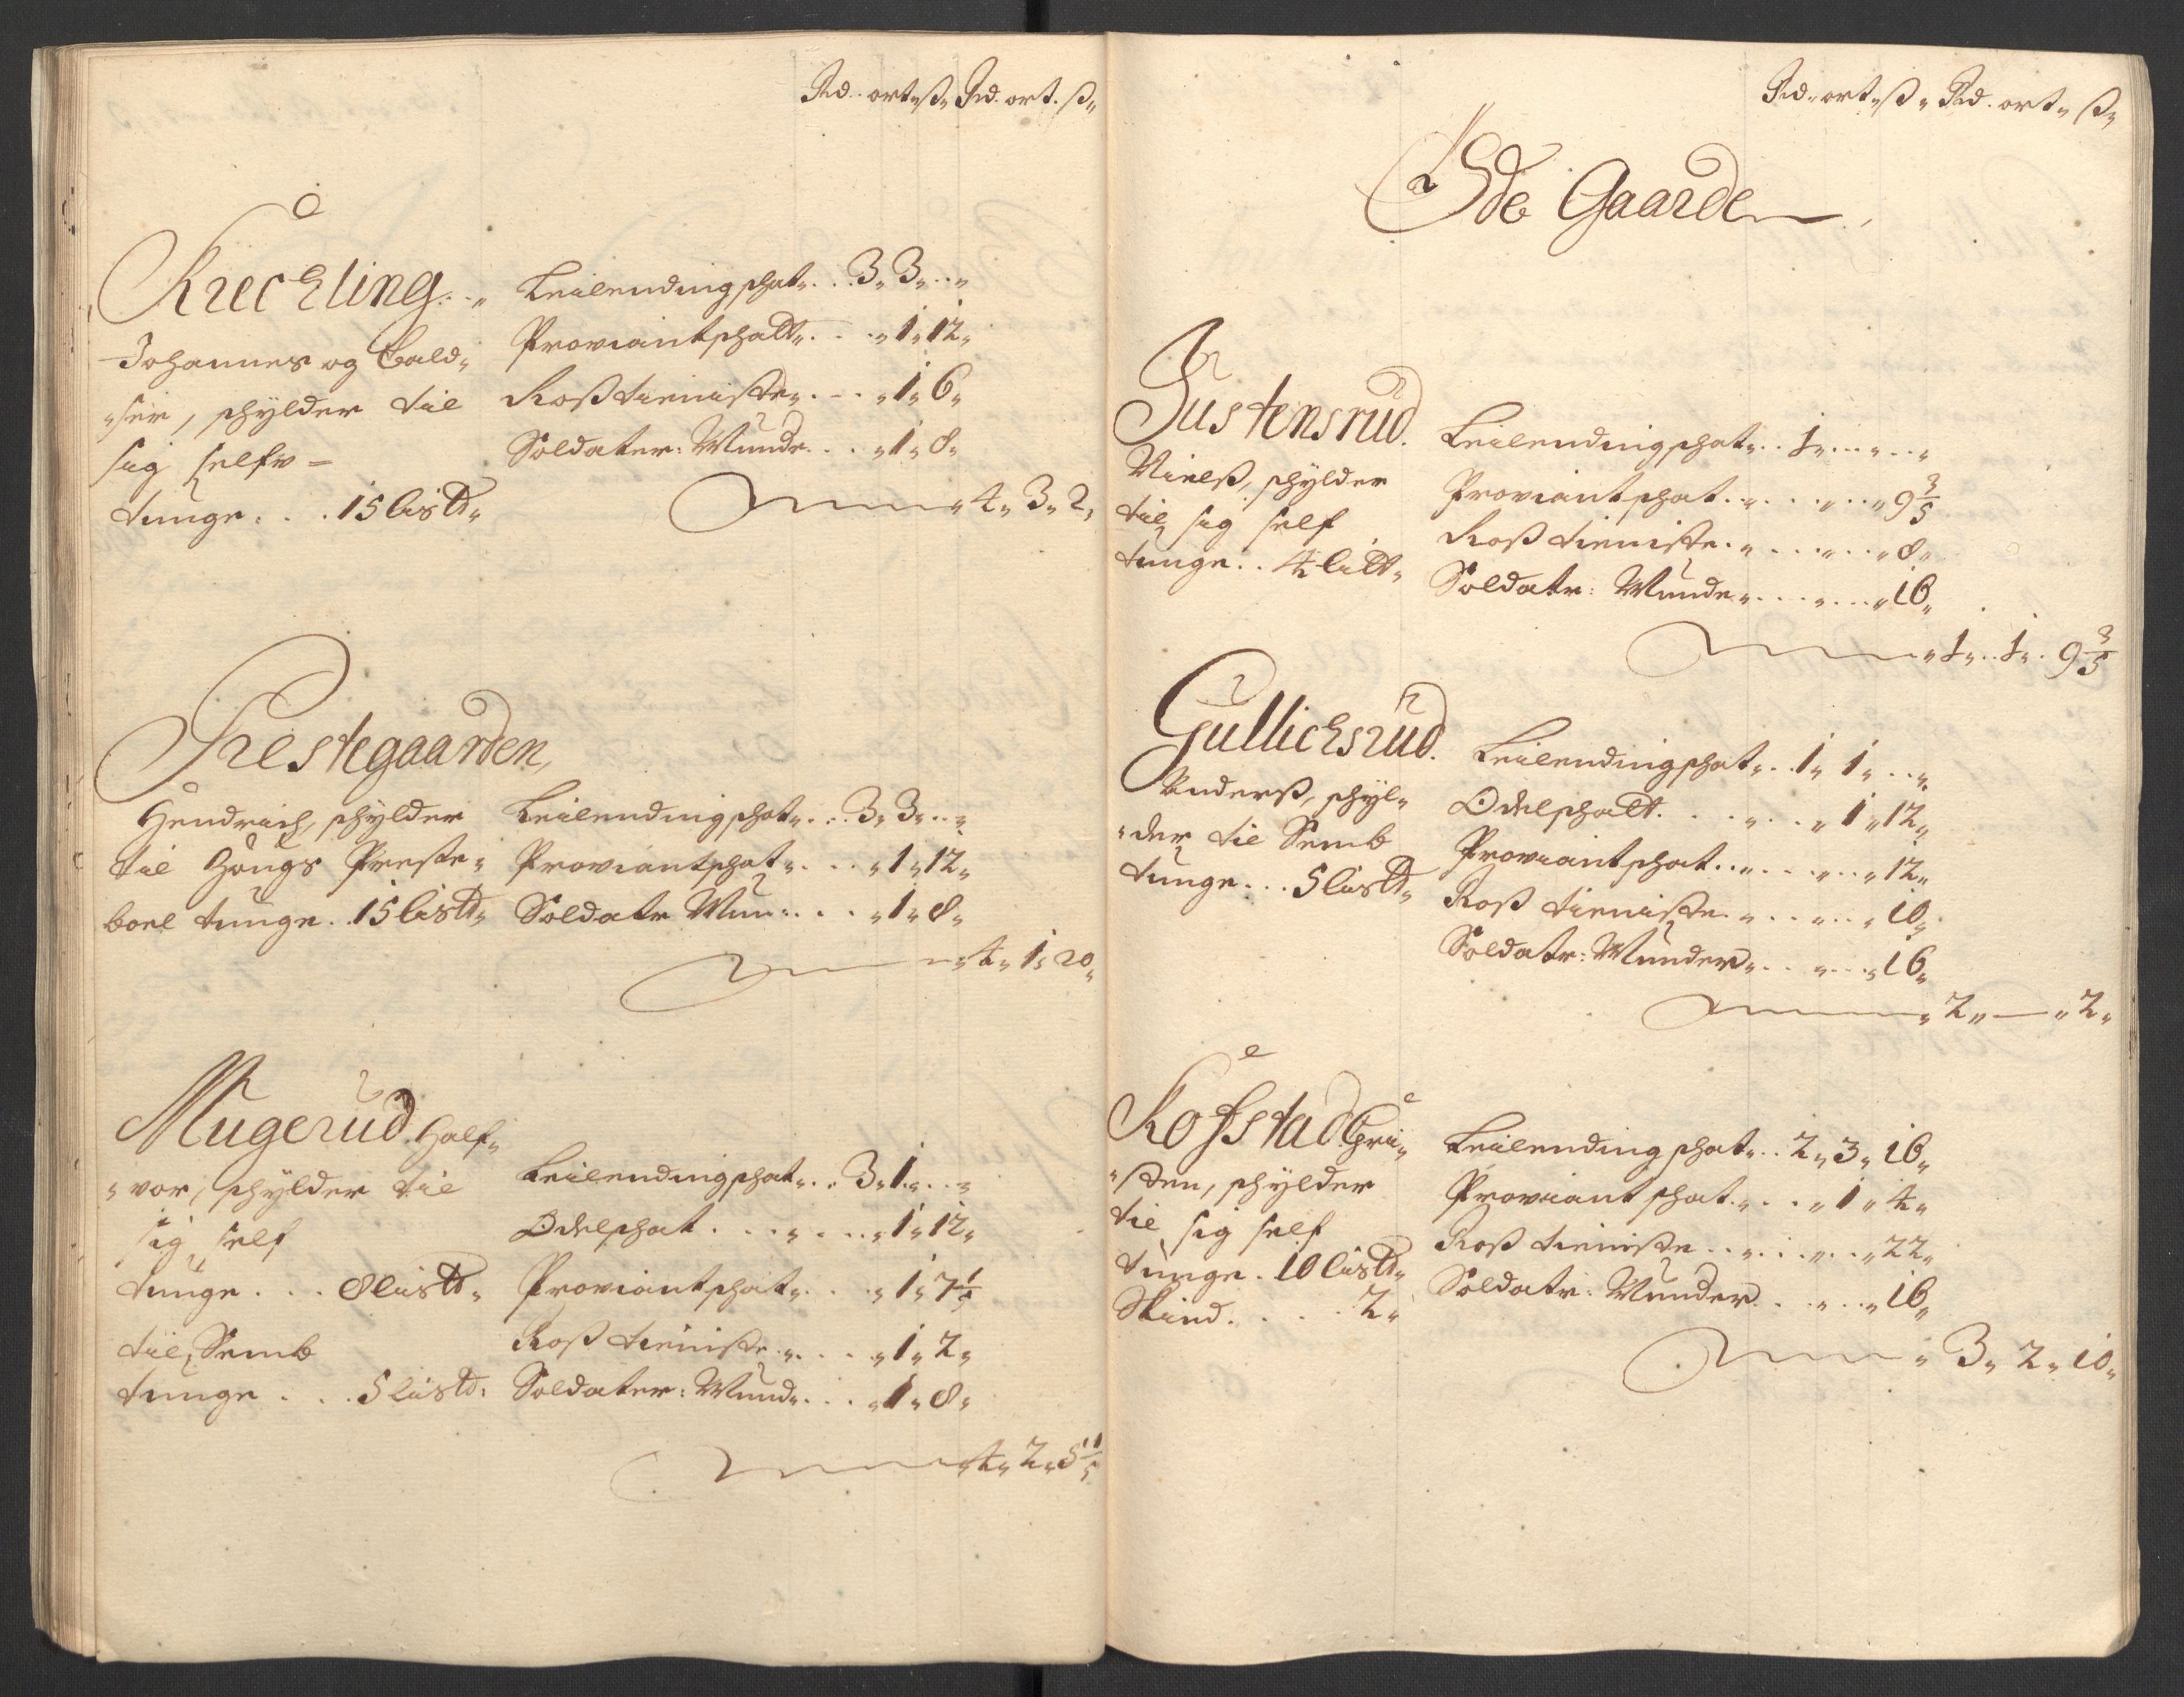 Rd. ort. ß. Rd. ort. ß.
Kreckling.
Johannes og Bald-
ser, schylder til
sig selfv
tunge . . . 15 listd.
Leilendingschat . . . 3. 3. . .
Proviantschatt . . . . 1. 12.
Roßtieniste . . . 1. 6.
Soldater: Munde . . . 1. 8.
4. 3. 2.
Prestegaarden,
Hendrich, schylder
til Hougs Preste-
boel tunge . 15 listd.
Leilendingschat . . . 3. 3. . .
Proviantschat . . . . 1. 12.
Soldate Mun: . . . 1. 8.
4. 1. 20.
Mugerud. Half-
vor, schylder til
sig self
tunge . . . 8 listd.
til Semb
tunge . . . 5 listd.
Leilendingschat . . . 3. 1. . .
Odelschat . . . . . . 1. 12.
Proviantschat . . . . 1. 7 1/5
Roßtieniste . . . . 1. 2.
Soldater: Mund. . . . 1. 8.
4. 2. 5 1/5
Rd. ort. ß. Rd. ort. ß.
Øde Gaarde
Justensrud.
Nielß, schylder
til sig self
tunge . . 4 listd.
Leilendingschat . . 1. . . . .
Proviantschat . . . . . . 9 3/5
Roßtieniste . . . . . . 8.
Soldate: Munde . . . . . 16.
1. . 1. . 9 3/5
Gullichsrud.
Anderß, schyl-
der til Semb
tunge . . . 5 listd.
Leilendingschat . . 1. 1. . .
Odelschatt . . . . . . 1. 12.
Proviantschat . . . . . . 12.
Roßtieniste . . . . . . 10.
Soldate: Munder . . . . . 16.
2. — 2.
Roßstad Gri-
ßten, schylder
til sig self
tunge . 10 listd.
Skind . . . . 2.
Leilendingschat . . 2. 3. 16.
Proviantschat . . . . 1. 4.
Roßtieniste . . . . . . 22.
Soldate: Munder . . . . 16.
3. 2. 10.